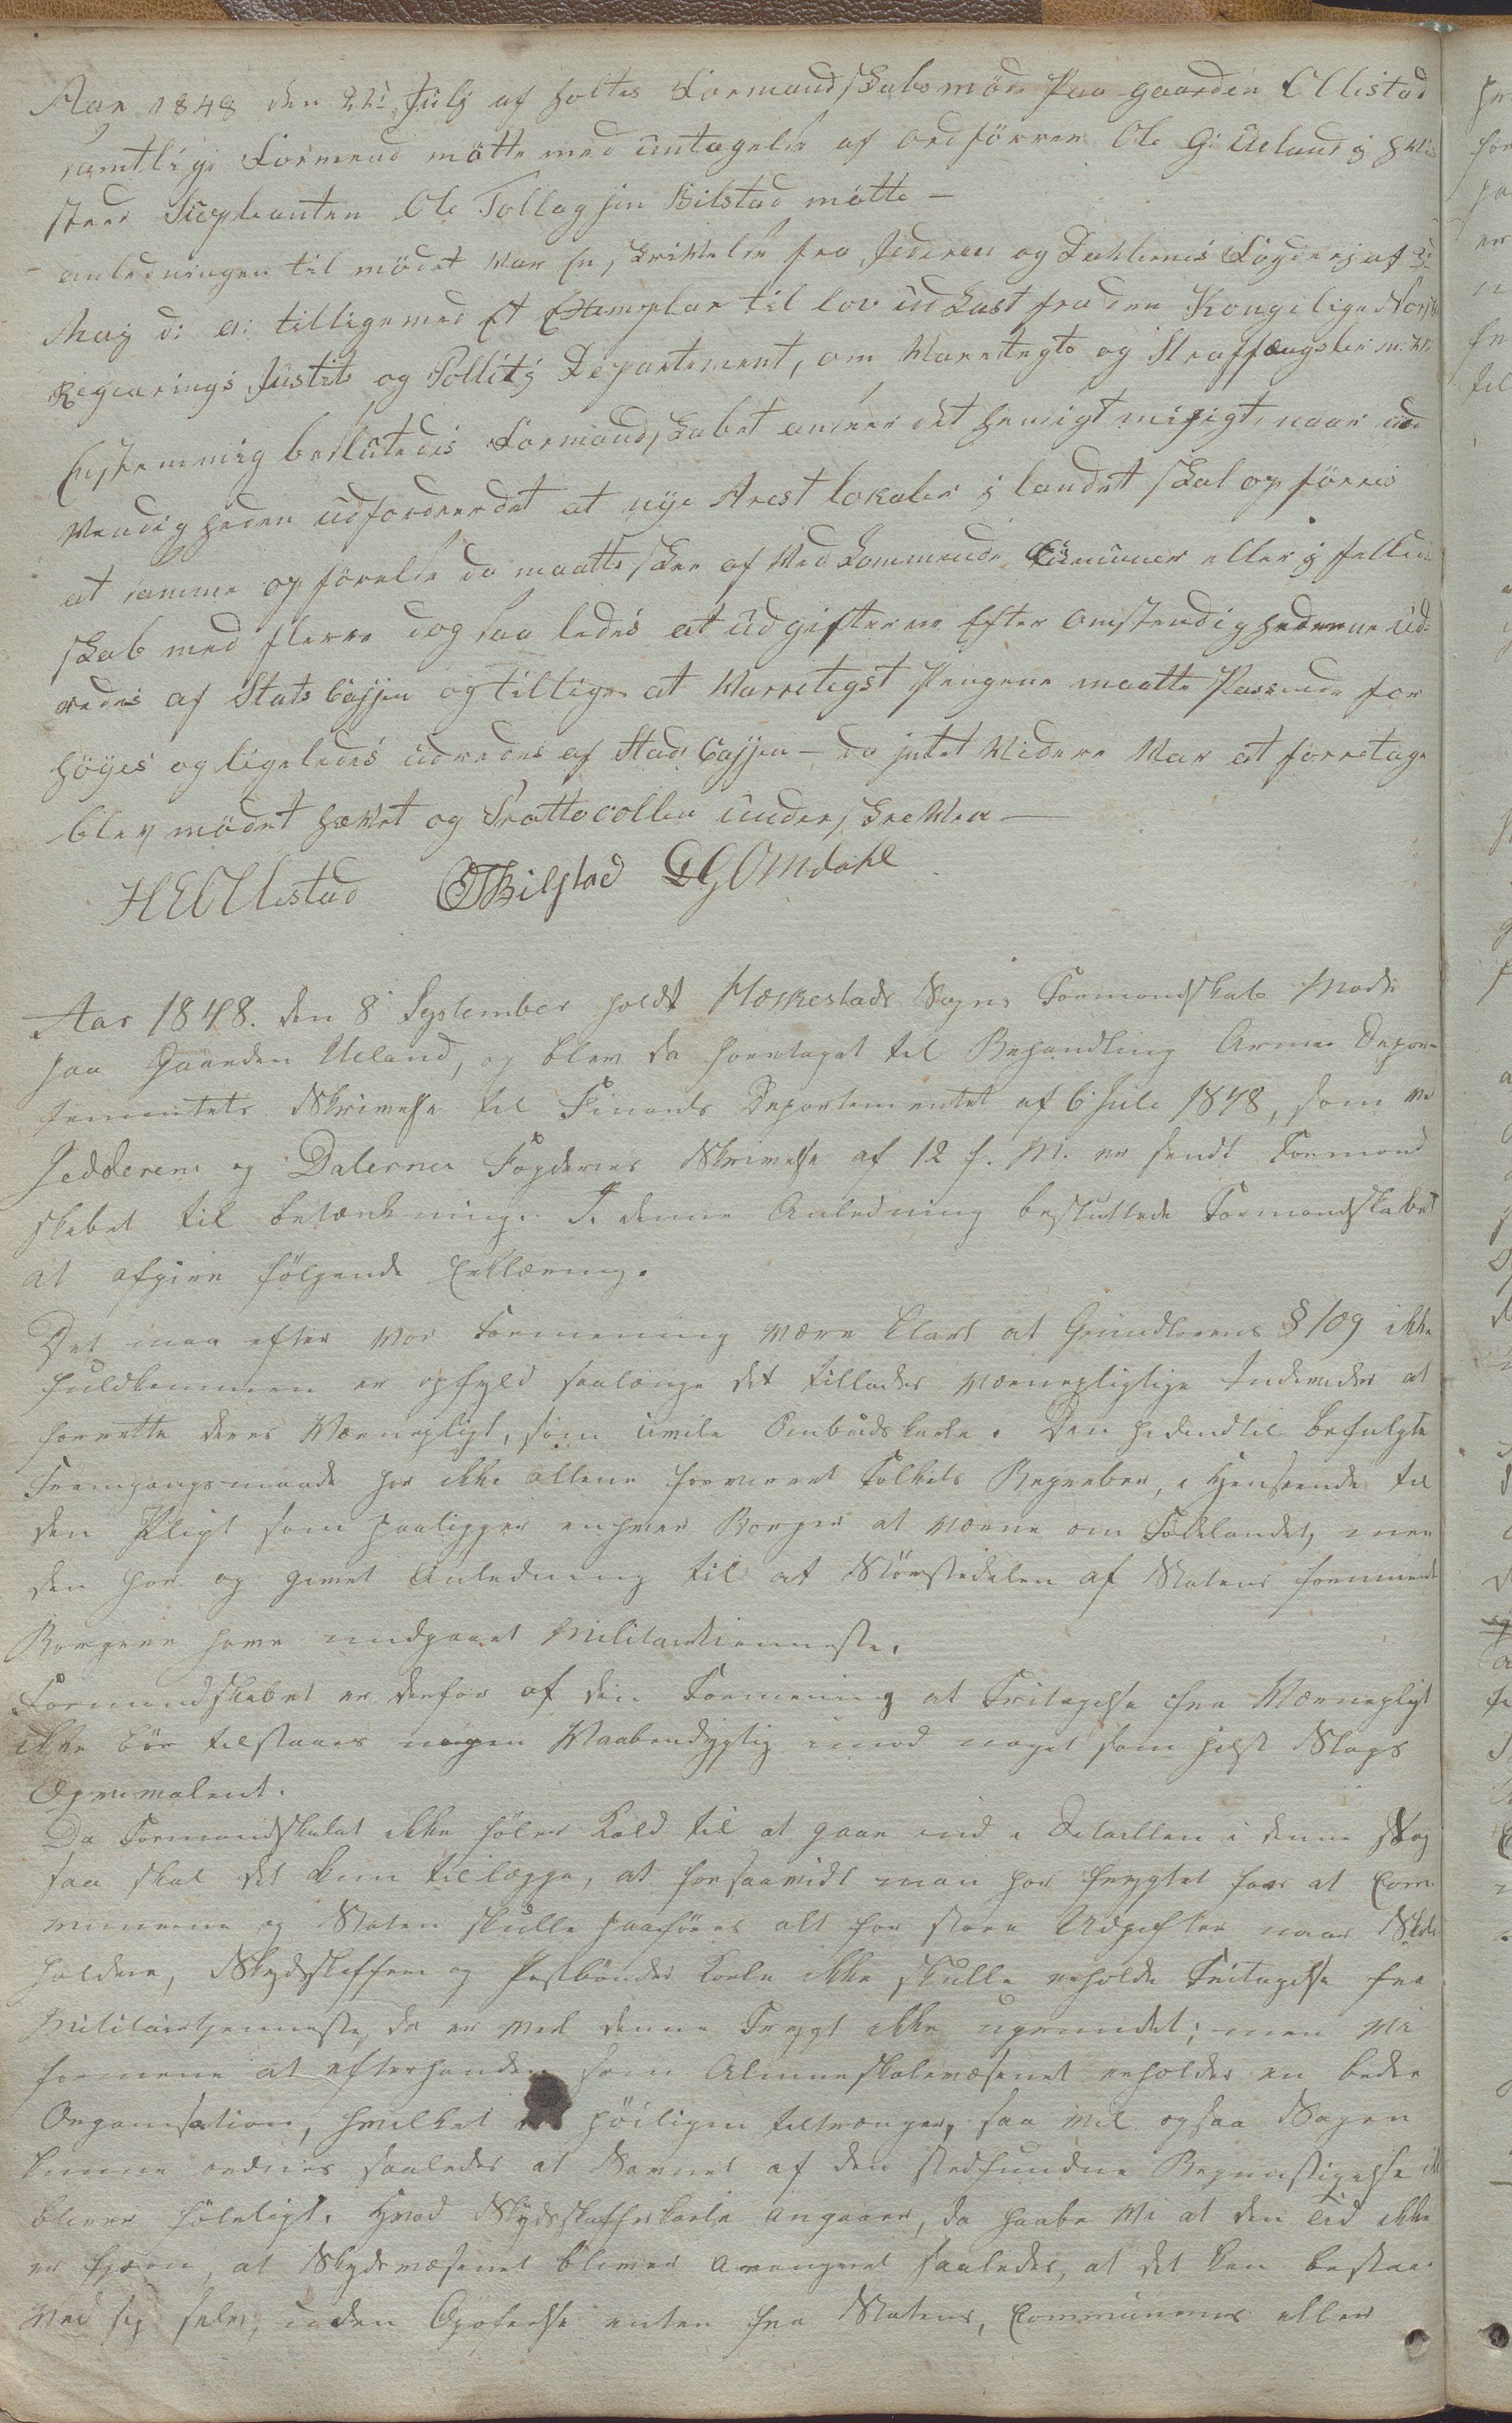 Aar 1848 den 22i July af holtes Formandskabsmøde Paa gaarden Ollestad
samtlige Formend møtte med untagelse af ordførren Ole G: Ueland j hvis
sted Supleanten Ole Tollagsen Bilstad møtte —
anledningen til mødet var En skrivelse fra Jederen og Dahlernes Fogderj af
Maj d: a: tilligemed Et Exemplar til lov udkast fra den Kongelige Norske
Regierings Justits og Pollitj Departement, om Varetegts og Straffængsler m: v:
Enstemmig beslutedes Formandskabet anseer det hensigtmesigt, naar nød
vendigheden udfordrer det at nye Arest lokaler j landet skal opførres
at samme opførelse da maatte skee af Vedkommende Cumuner eller j felles
skab med flerre dog saa ledes at udgifterne Efter omstendighederne ud
redes af Stats Cassen og tillige at Varretegst Pengene maatte Passende for
høyes og ligeledes udredes af Stads Cassen — da intet Videre Var at forretage
blev mødet hævet og Prottocollen underskreven —
H E Ollestad OTBilstad GGOmdahl
Aar 1848. den 8 September holdt Heskestads Sogns Formandskab Møde
paa Gaarden Ueland, og blev da foretaget til Behandling Armee Depar-
tementets Skrivelse til Finants Departementet af 6 Juli 1848, som ved
Jedderens og Dalernes Fogderies Skrivelse af 12 f. M. er sendt Formand
skabet til betænkning. I denne Anledning besluttede Formandskabet
at afgive følgende Erklæring.
Det maa efter vor Formening være klart at Grundlovens § 109 ikke
fuldkommen er opfyld saalænge det tillades værnepligtige Individer at
forrette deres Værnepligt, som civile Ombudskarle. Den hidindtil befulgte
Fremgangsmaade har ikke allene forvirret Folkets Begreber, i Henseende til
den Pligt som paaligger enhver Borger at værne om Fødelandet, men
den har og givet Anledning til at Størstedelen af Statens formuende
Borgere have undgaaet Militairtienneste.
Formandskabet er derfor af den Formening at Fritagelse fra Værnepligt
ikke bør tilstaaes nogen Vaabendygtig imod noget som helst Slags
Æqvivalent.
Da Formandskabet ikke føler Kald til at gaae ind i Detaillen i denne Sag
saa skal det kun tillægge, at forsaavidt man har frygtet for at Com
munerne og Staten skulle paaføres alt for store Udgifter naar Skole
holdere, Skydsskaffere og Postbønders Karle ikke skulle erholde Fritagelse fra
Militairtjenneste, da er vel denne Frygt ikke ugrundet; men vi
formene at efterhaanden som Almueskolevæsenet erholder en bedre
Organisation, hvilket høiligen tiltrænges, saa vil ogsaa Sagen
kunne ordnes saaledes at Savnet af den stedfundne Begunstigelse ikke
bliver føleligt. Hvad Skydsskafferkarle angaaer, da haabe vi at den Tid ikke
er fjern, at Skydsvæsenet bliver arangeret saaledes, at det kan bestaa
ved sig selv, uden Opoferelse enten fra Statens, Communens eller